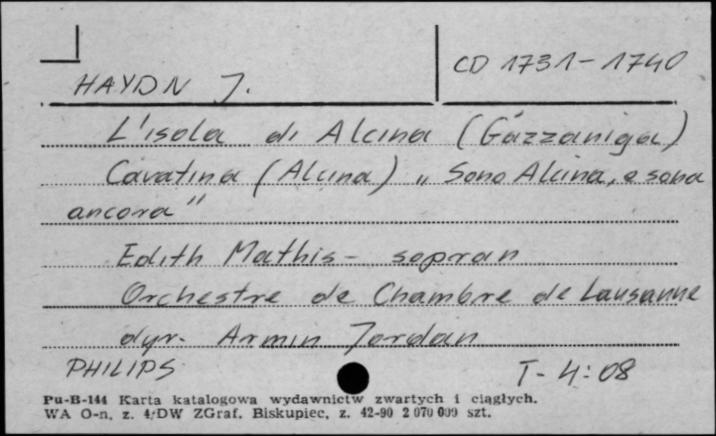 HAYDN J.
CD 1731-1740
L'isola di Alcina (Gazzaniga)
Cavatina (Alcina) „Sono Alcina, e sono
ancora"
Edith Mathis - sopran
Orchestre de Chambre de Lausanne
dyr. Armin Jordan
PHILIPS
T- 4:08
Pu-B-144 Karta katalogowa wydawnictw zwartych i ciągłych.
WA O-n, z. 4/DW ZGraf. Biskupiec, z. 42-90 2 070 000 szt.